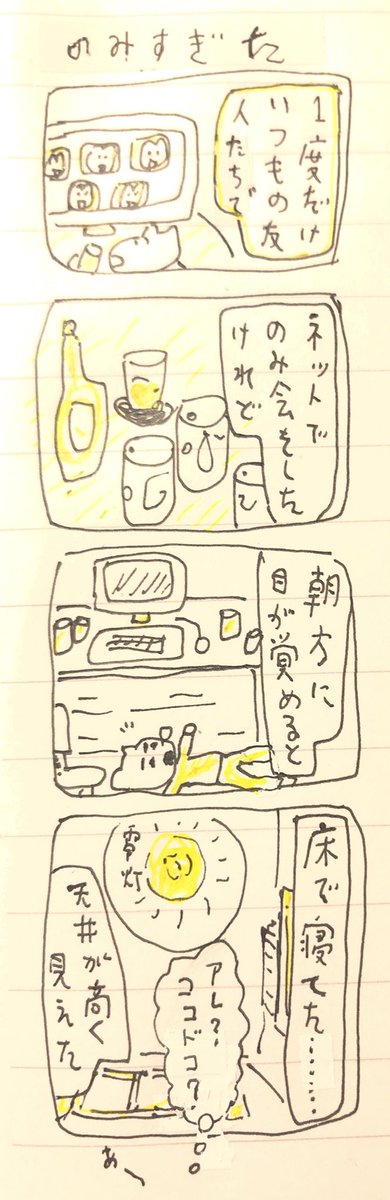 のみすぎた
1度だけ
いつもの友
人たちで
ネットで
のみ会をした
けれど
朝方に
目が覚めると
床で寝てた………
アレ？
ココドコ？
電灯
天井が高く
見えた
あ〜